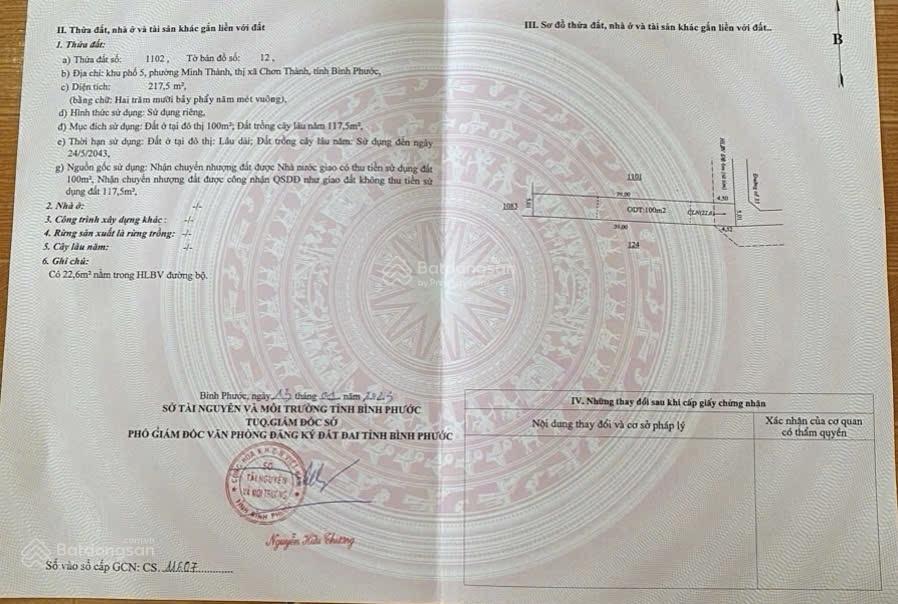 II. Thửa đất, nhà ở và tài sản khác gắn liền với đất
1. Thửa đất:
a) Thửa đất số: 1102, Tờ bản đồ số: 12,
b) Địa chỉ: khu phố 5, phường Minh Thành, thị xã Chơn Thành, tỉnh Bình Phước,
c) Diện tích: 217,5 m²,
(bằng chữ: Hai trăm mười bảy phẩy năm mét vuông),
d) Hình thức sử dụng: Sử dụng riêng,
đ) Mục đích sử dụng: Đất ở tại đô thị 100m²; Đất trồng cây lâu năm 117,5m²,
e) Thời hạn sử dụng: Đất ở tại đô thị: Lâu dài; Đất trồng cây lâu năm: Sử dụng đến ngày
24/5/2043,
g) Nguồn gốc sử dụng: Nhận chuyển nhượng đất được Nhà nước giao có thu tiền sử dụng đất
100m², Nhận chuyển nhượng đất được công nhận QSDĐ như giao đất không thu tiền sử
dụng đất 117,5m²,
2. Nhà ở: -/-
3. Công trình xây dựng khác: -/-
4. Rừng sản xuất là rừng trồng: -/-
5. Cây lâu năm: -/-
6. Ghi chú:
Có 22,6m² nằm trong HLBV đường bộ.
Bình Phước, ngày 13 tháng 01 năm 2025
SỞ TÀI NGUYÊN VÀ MÔI TRƯỜNG TỈNH BÌNH PHƯỚC
TUQ.GIÁM ĐỐC SỞ
PHÓ GIÁM ĐỐC VĂN PHÒNG ĐĂNG KÝ ĐẤT ĐAI TỈNH BÌNH PHƯỚC
SỞ
TÀI NGUYÊN
VÀ MÔI TRƯỜNG
TỈNH BÌNH PHƯỚC
Nguyễn Hữu Thương
Số vào sổ cấp GCN: CS.
III. Sơ đồ thửa đất, nhà ở và tài sản khác gắn liền với đất..
B
1101
1083
5.01
39.00
4.50
ODT:100m2
5.01
39.00
4.52
124
Batdongsan
Batdongsan
.com.vn
IV. Những thay đổi sau khi cấp giấy chứng nhận
Nội dung thay đổi và cơ sở pháp lý
Xác nhận của cơ quan
có thẩm quyền